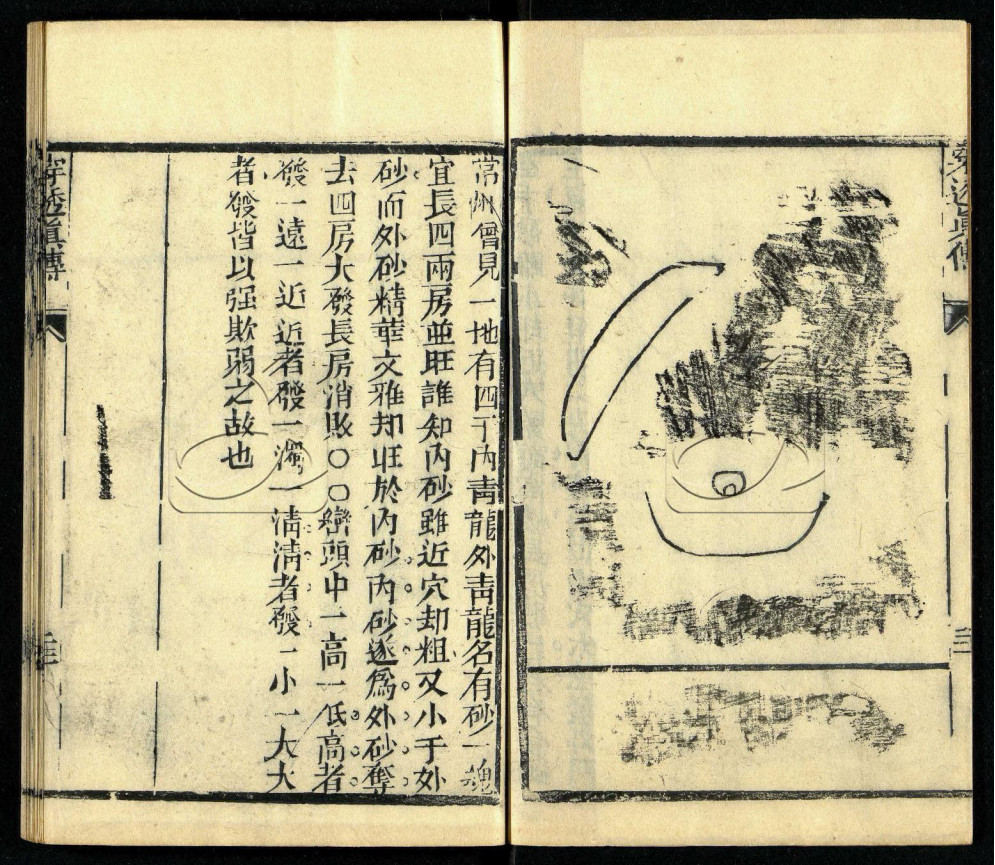 穿透眞傳
常州曾見一地有四子內青龍外青龍名有砂一塊
宜長四兩房並旺誰知內砂雖近穴却粗又小于外
砂而外砂精華文雅却旺於內砂內砂遂爲外砂奪
去四房大發長房消敗〇〇巒頭中一高一低高者
發一遠一近近者發一濁一清清者發一小一大大
者發皆以强欺弱之故也
穿透眞傳